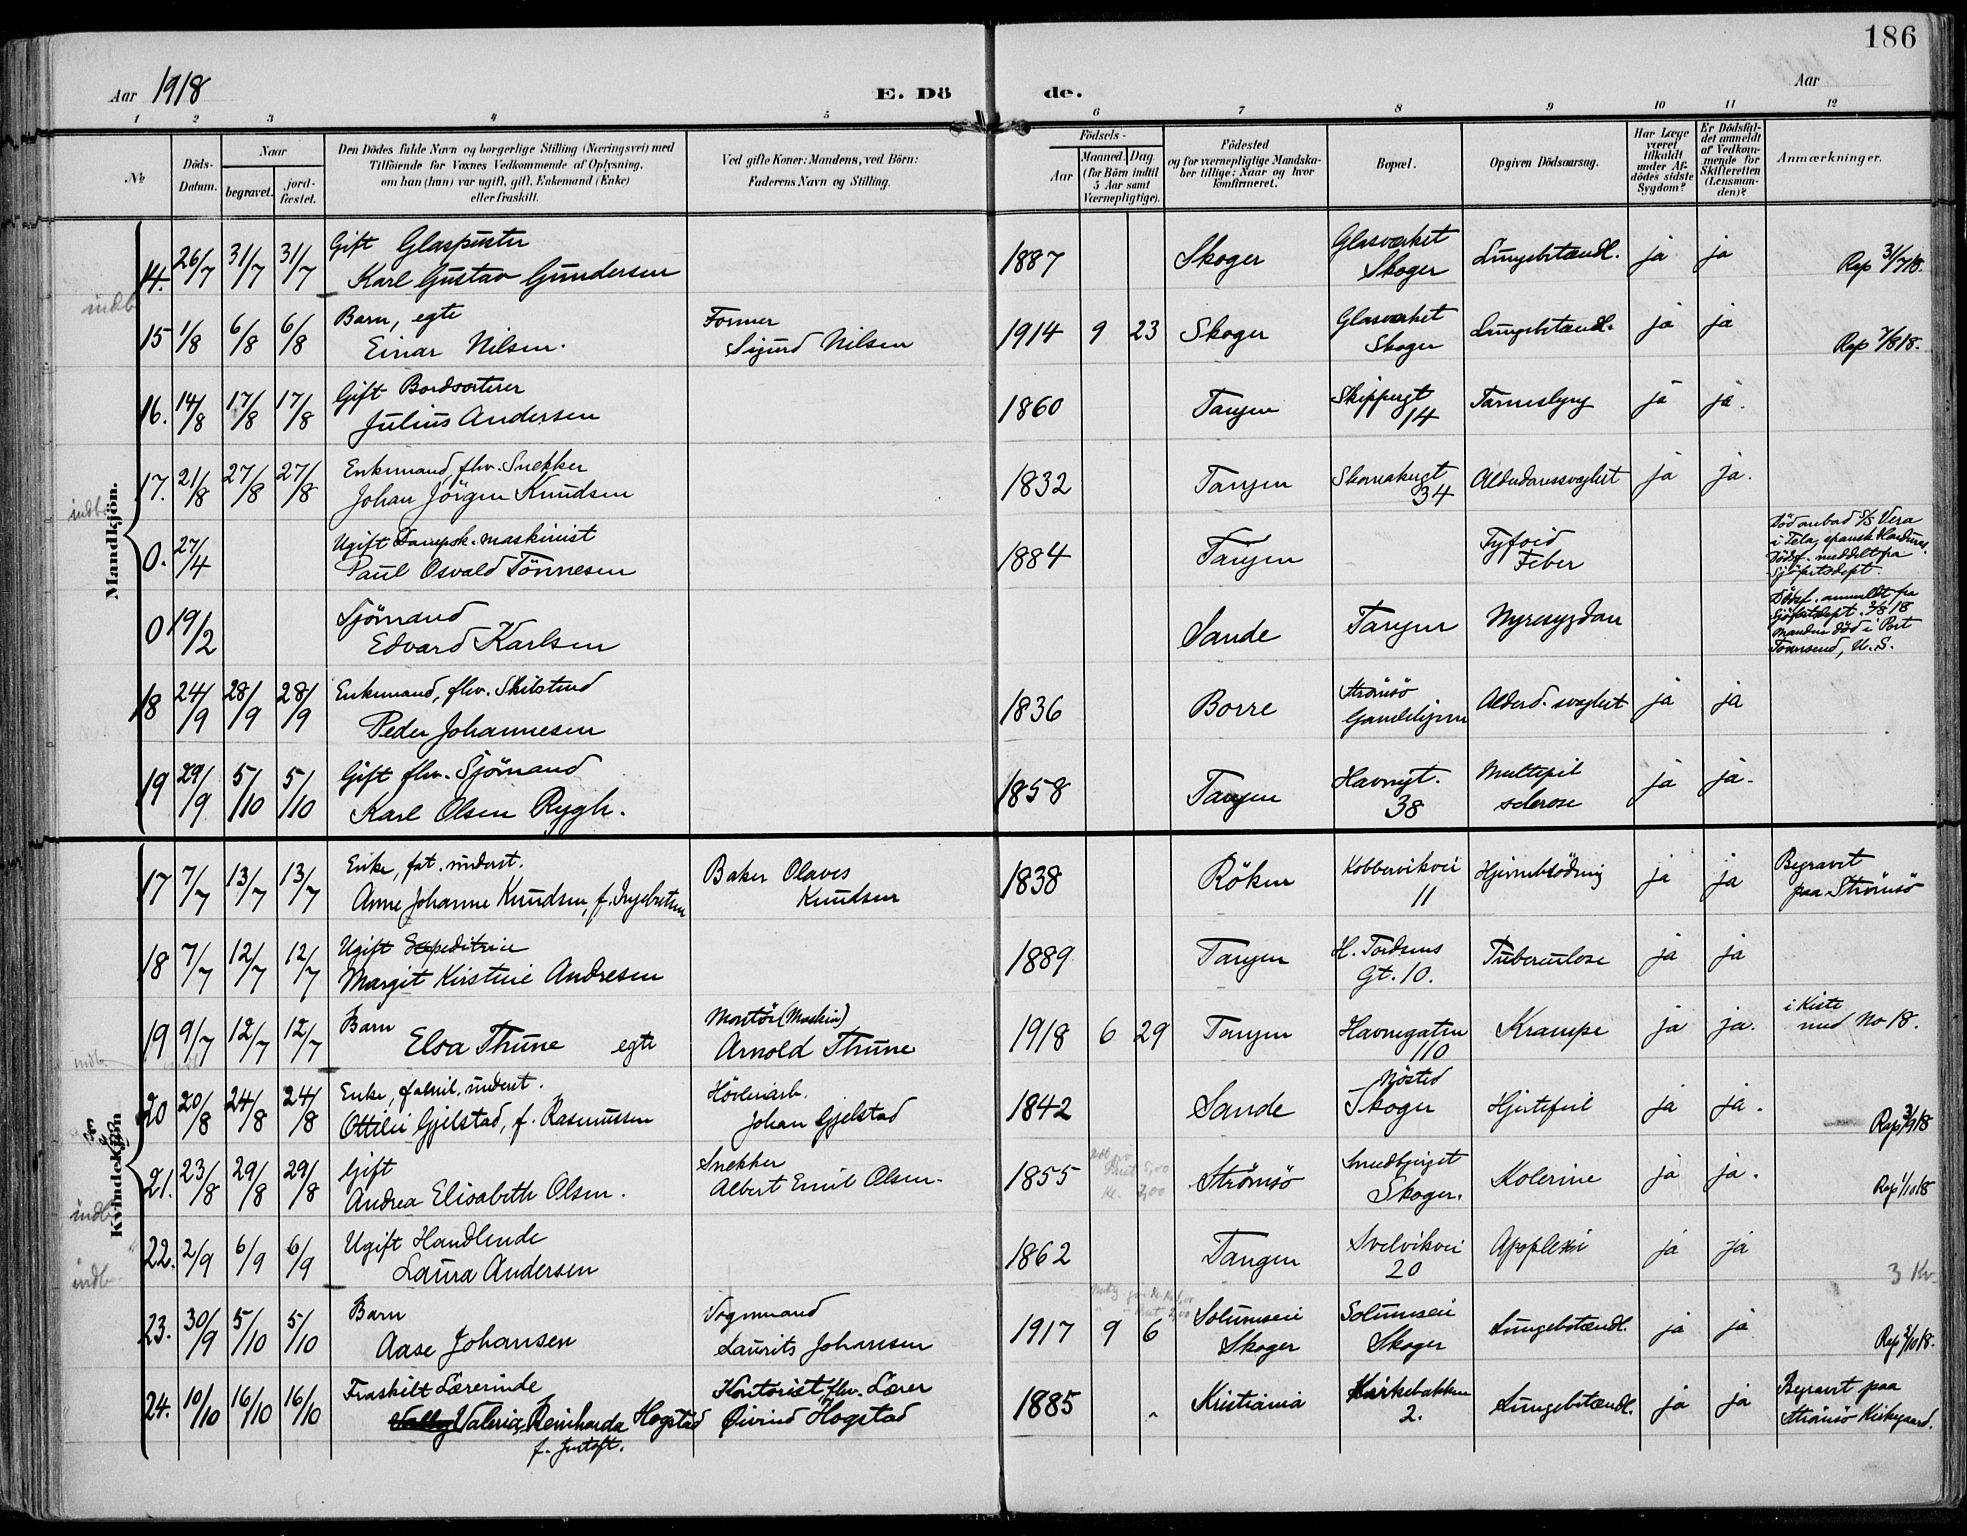 186
Aar 1918
E. Dö de.
Aar
1 2 3 4 5 6 7 8 9 10 11 12
№
Döds-Datum.
Naar
begravet.
jord-fæstet.
Den Dödes fulde Navn og borgerlige Stilling (Næringsvei) med
Tilföiende for Voxnes Vedkommende af Oplysning,
om han (hun) var ugift, gift, Enkemand (Enke)
eller fraskilt.
Ved gifte Koner: Mandens, ved Börn:
Faderens Navn og Stilling.
Födsels-
Aar
Maaned. Dag
(for Börn indtil
5 Aar samt
Værnepligtige).
Födested
og for værnepligtige Mandska-
ber tillige: Naar og hvor
konfirmeret.
Bopæl.
Opgiven Dödsaarsag.
Har Læge
været
tilkaldt
under Af-
dödes sidste
Sygdom?
Er Dödsfal-
det anmeldt
af Vedkom-
mende for
Skifteretten
(Lensman-
den)?
Anmærkninger.
Mandkjön.
14. 26/7 31/7 31/7 Gift Glaspuster
Karl Gustav Gundersen
1887 Skoger Glasværket
Skoger Lungebetændl. ja ja Rap 31/7 18.
indb.
15 1/8 6/8 6/8 Barn, egte
Einar Nilsen.
Former
Sigurd Nilsen
1914 9 23 Skoger Glasværket
Skoger Lungebetændl. ja ja Rap 7/8 18.
16. 14/8 17/8 17/8 Gift Bordsorterer
Julius Andersen
1860 Tangen Skippergt
14 Tarmslyng ja ja.
17. 21/8 27/8 27/8 Enkemand, fhv. Snekker
Johan Jörgen Knudsen
1832 Tangen Skomakergt
34 Alderdomssvaghet ja ja.
indb.
0. 27/4 Ugift Dampsk.maskinist
Paul Osvald Tönnesen
1884 Tangen Tyfoid
Feber
Död ombord S/S Vera
i Tela, spansk Honduras.
Dödsf. meddelt fra
Sjöfartsdept.
0 19/2 Sjömand
Edvard Karlsen
Sande Tangen Nyresygdom
Dödsf. anmeldt fra
Sjöfartsdept. 3/8 18
Manden död i Port
Townsend, U.S.
18 24/9 28/9 28/9 Enkemand, fhv.
Peder Johannesen
1836 Borre Strömsö
Gamlehjem Alderd. svaghet ja ja
19 29/9 5/10 5/10 Gift fhv. Sjömand
Karl Olsen Rygh.
1858 Tangen Havnegt.
38 Multipel
sclerose ja ja.
Kvindekjön
17 7/7 13/7 13/7 Enke, fat. underst.
Anne Johanne Knudsen, f. Ingebretsen
Baker Olaves
Knudsen
1838 Röken Kobbervikvei
11 Hjerneblödning ja ja Begravet
paa Strömsö
18 7/7 12/7 12/7 Ugift Expeditrice
Margit Kirstine Andresen
1889 Tangen H. Tordsens
Gt. 10. Tuberculose ja ja
19 9/7 12/7 12/7 Barn
Elsa Thune egte
Montör (Maskin)
Arnold Thune
1918 6 29 Tangen Havnegaten
110 Krampe ja ja. i Kiste
med No 18.
indb.
20 20/8 24/8 24/8 Enke, underst.
Ottilie Gjelstad, f. Rasmussen
Hövleriarb.
Johan Gjelstad
1842 Sande Nösted
Skoger Hjertefeil ja ja. Rap 3/9 18
21. 23/8 29/8 29/8 Gift
Andrea Elisabeth Olsen.
Snekker
Albert Emil Olsen.
1855 5,00
kr. 2,00 Strömsö
Skoger. Kolerine ja ja. Rap 1/10 18
indb.
22. 2/9 6/9 6/9 Ugift Handlende
Laura Andersen
1862 Tangen Svelvikvei
20 Apoplexi ja ja
indb. 3 Kv.
23. 30/9 5/10 5/10 Barn
Aase Johansen
Vognmand
Laurits Johansen
1917 9 6 Solumseie
Skoger Solumseie
Skoger Lungebetændl. ja ja
24. 10/10 16/10 16/10 Fraskilt Lærerinde
Valborg Valeria Reinharda Hogstad
f. Justoft.
Kontorist, fhv. Lærer
Öivind Hogstad
1885 Kristiania Kirkebakken
2. Lungebetændl. ja ja Begravet paa
Strömsö Kirkegaard.